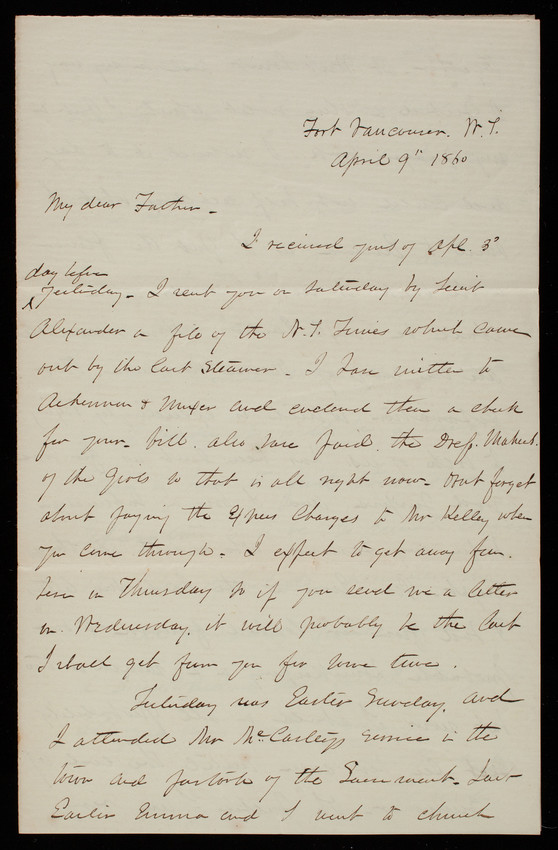 Fort Vancouver. W.T.
April 9" 1860
My dear Father -
I received yours of Apl. 3d
day before
Yesterday - I sent you on Saturday by Lieut
Alexander a file of the N.Y. Times which came
out by the last Steamer - I have written to
Ackerman & Miller and enclosed them a check
for your bill. also have paid the Dress Makers.
of the girls so that is all right now - Dont forget
about paying the Express Charges to Mr Kelley when
you come through - I expect to get away from
here on Thursday so if you send me a letter
on Wednesday, it will probably be the last
I shall get from you for some time.
Yesterday was Easter Sunday, and
I attended Mr McCarty's service in the
town and partook of the Sacrament - Last
Easter Emma and I went to church